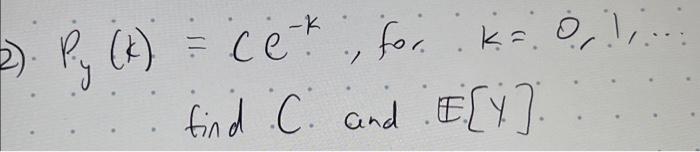 2) P_y (k) = Ce^-k , for k = 0, 1, ...
find C and 𝔼[Y]